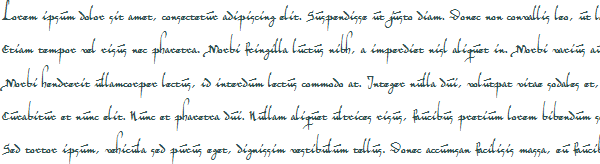 Lorem ipsum dolor sit amet, consectetur adipiscing elit. Suspendisse ut justo diam. Donec non convallis leo, ut l
Etiam tempor vel risus nec pharetra. Morbi fringilla luctus nibh, a imperdiet nisl aliquet in. Morbi varius au
Morbi hendrerit ullamcorper lectus, id interdum lectus commodo at. Integer nulla dui, volutpat vitae sodales et,
Curabitur et nunc elit. Nunc et pharetra dui. Nullam aliquet ultrices risus, faucibus pretium lorem bibendum s
Sed tortor ipsum, vehicula sed purus eget, dignissim vestibulum tellus. Donec accumsan facilisis massa, eu faucib